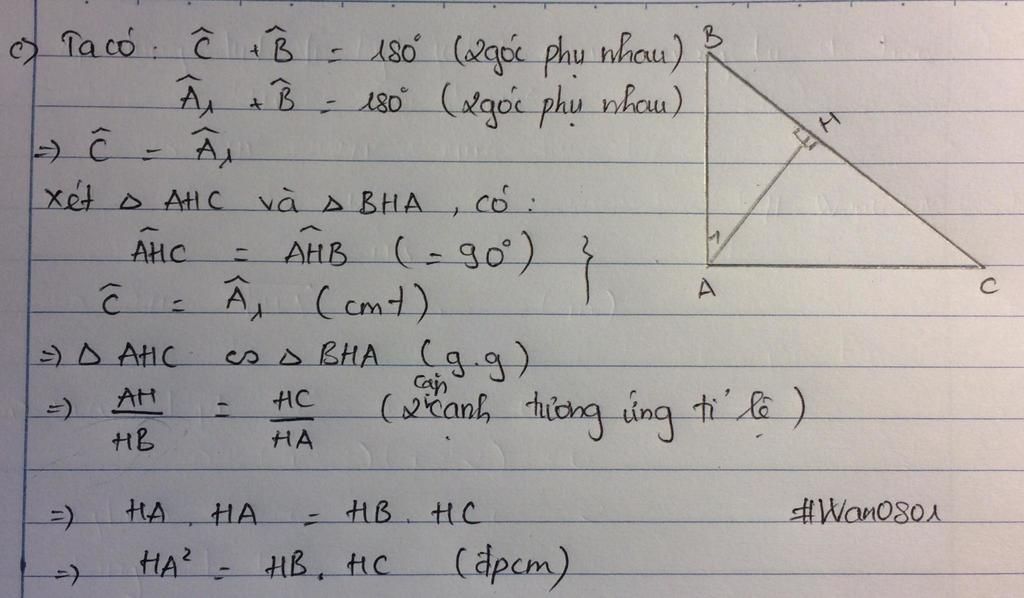 c) Ta có: Ĉ + B̂ = 180° (2 góc phụ nhau)
Â₁ + B̂ = 180° (2 góc phụ nhau)
=> Ĉ = Â₁
xét △ AHC và △ BHA, có:
AHC = AHB (= 90°) }
Ĉ = Â₁ (cmt)
=> △ AHC ∽ △ BHA (g.g)
=> AH/HB = HC/HA (2 cặp cạnh tương ứng tỉ lệ)
=> HA . HA = HB . HC
=> HA² = HB . HC (đpcm)
#Wan0801
B
H
1
A
C